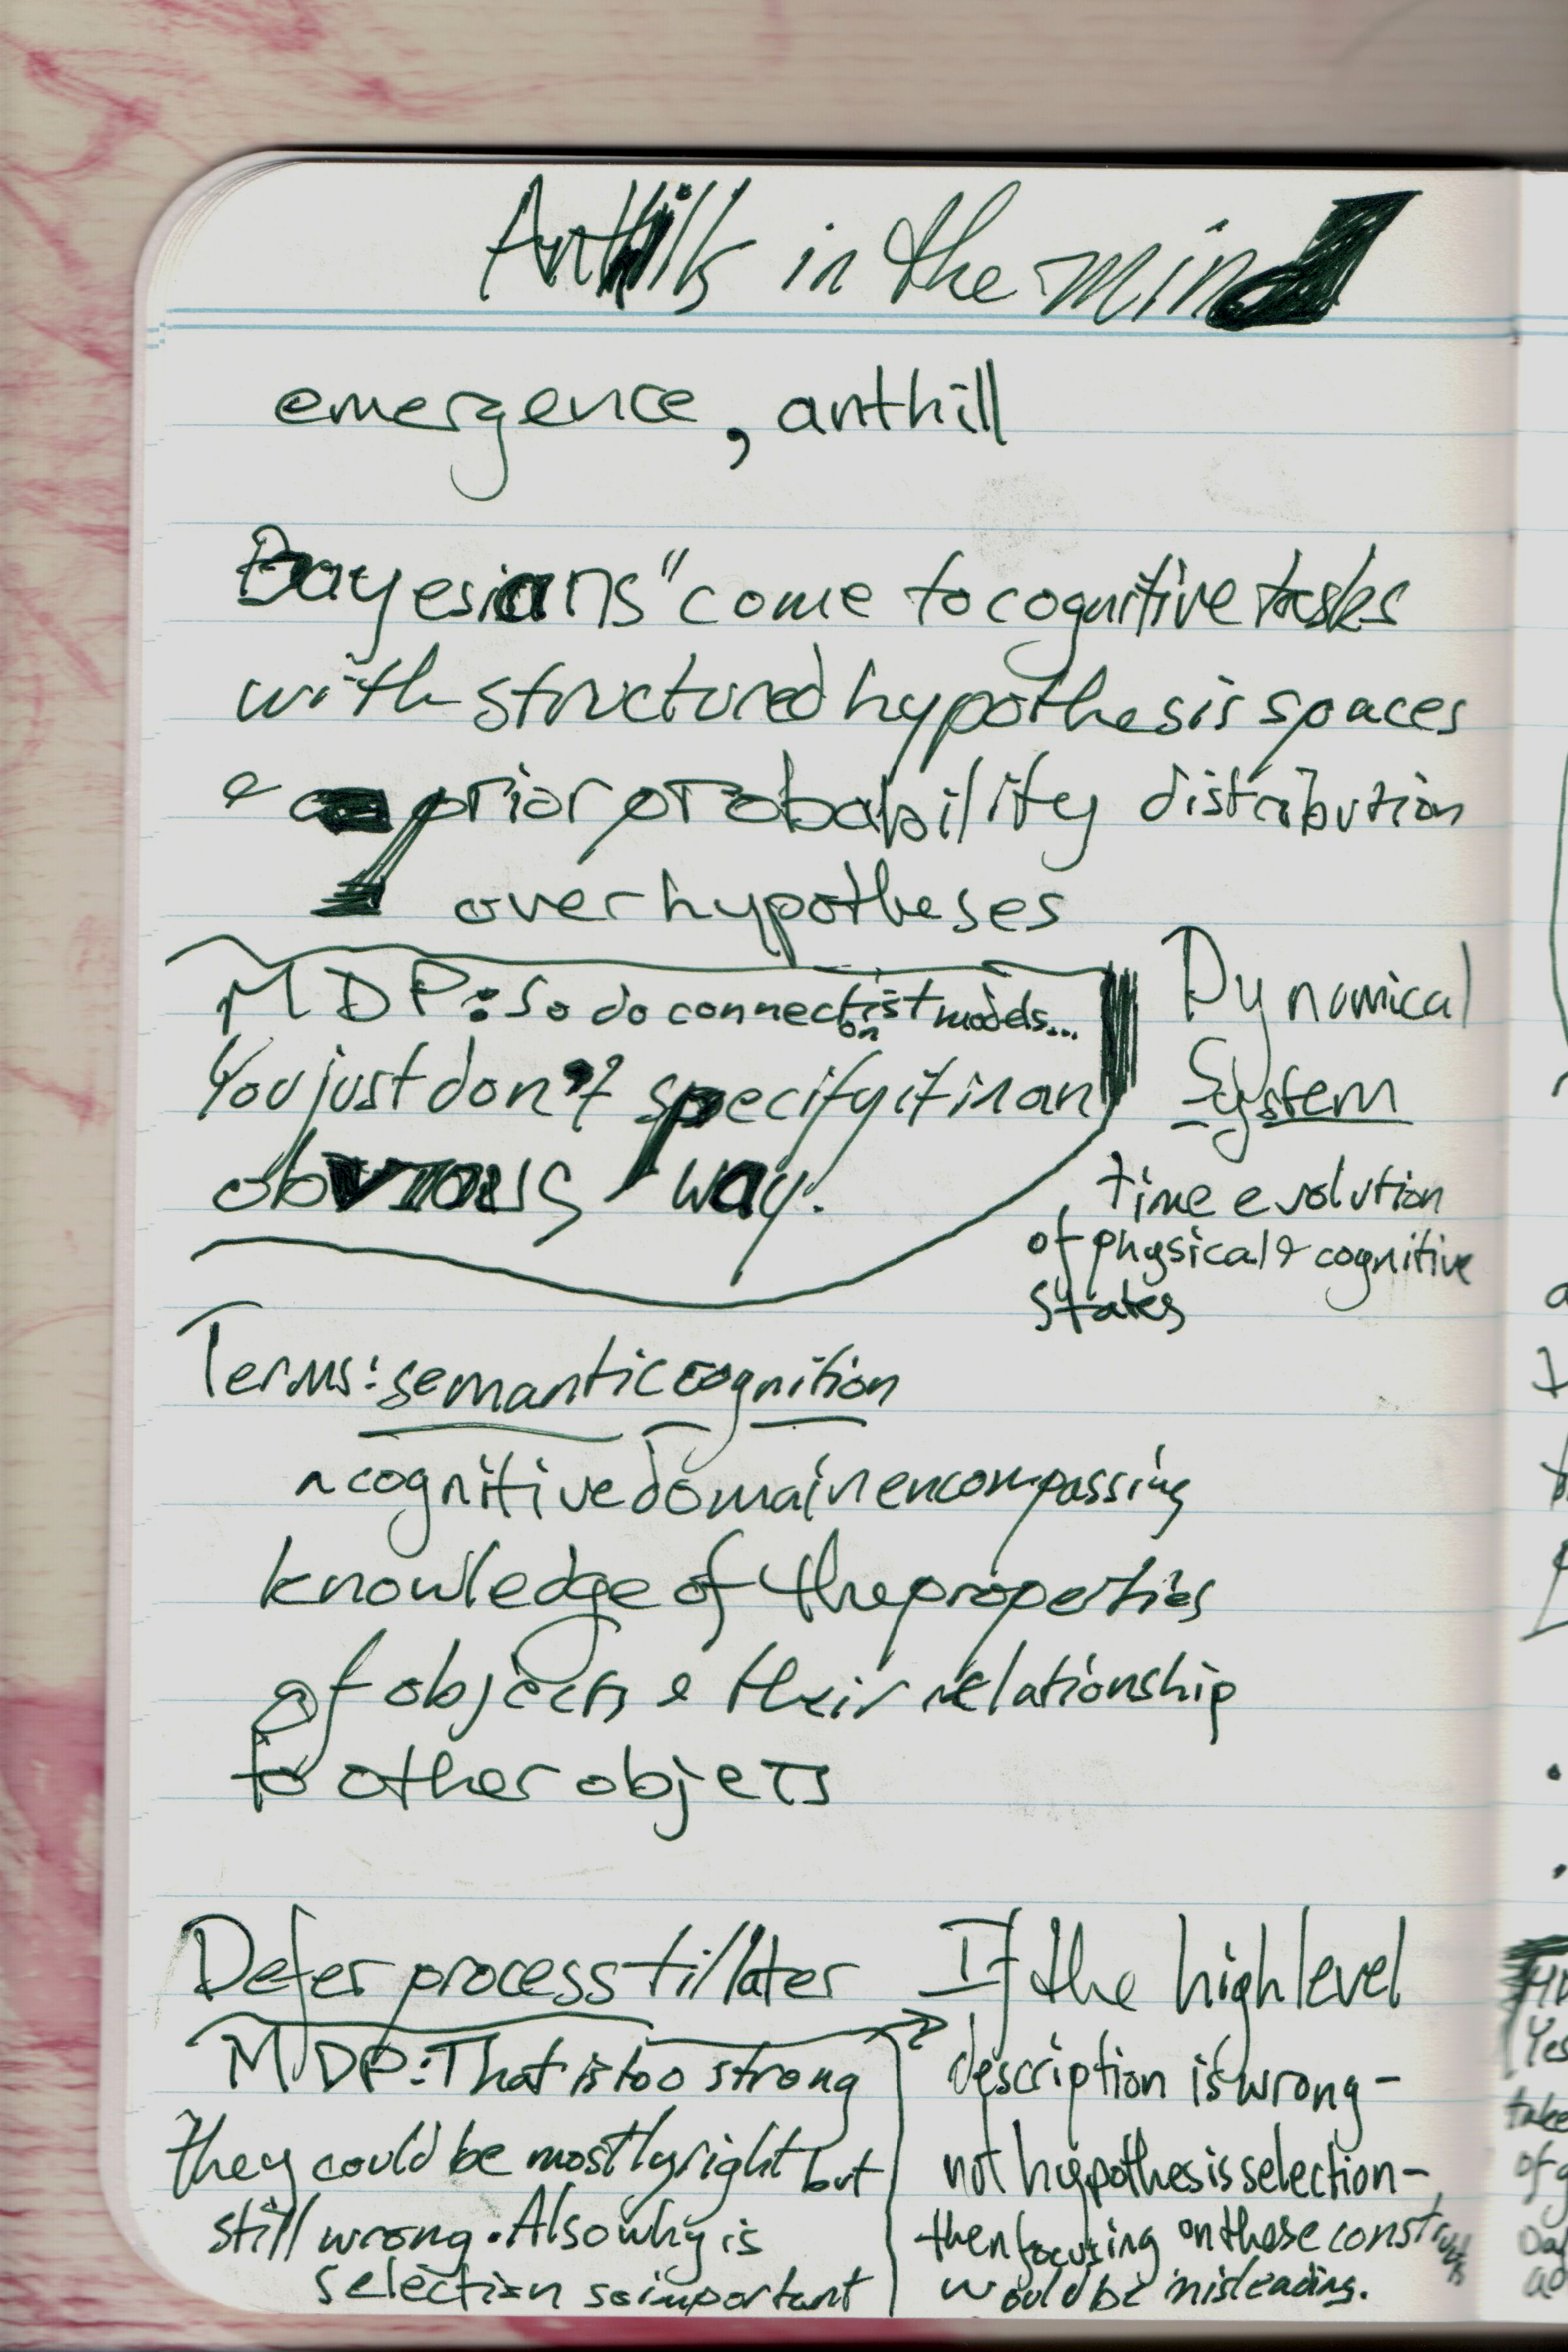 Anthills in the mind
emergence, anthill
Bayesians "come to cognitive tasks
with structured hypothesis spaces
& a prior probability distribution
over hypotheses
MDP: So do connectionist models...
You just don't specify it in an
obvious way.
Dynamical
System
time evolution
of physical & cognitive
states
Terms: semantic cognition
a cognitive domain encompassing
knowledge of the properties
of objects & their relationship
to other objets
Defer process till later
MDP: That is too strong
they could be mostly right but
still wrong. Also why is
selection so important
If the high level
description is wrong -
not hypothesis selection -
then focusing on these constructs
would be misleading.
Yes
take